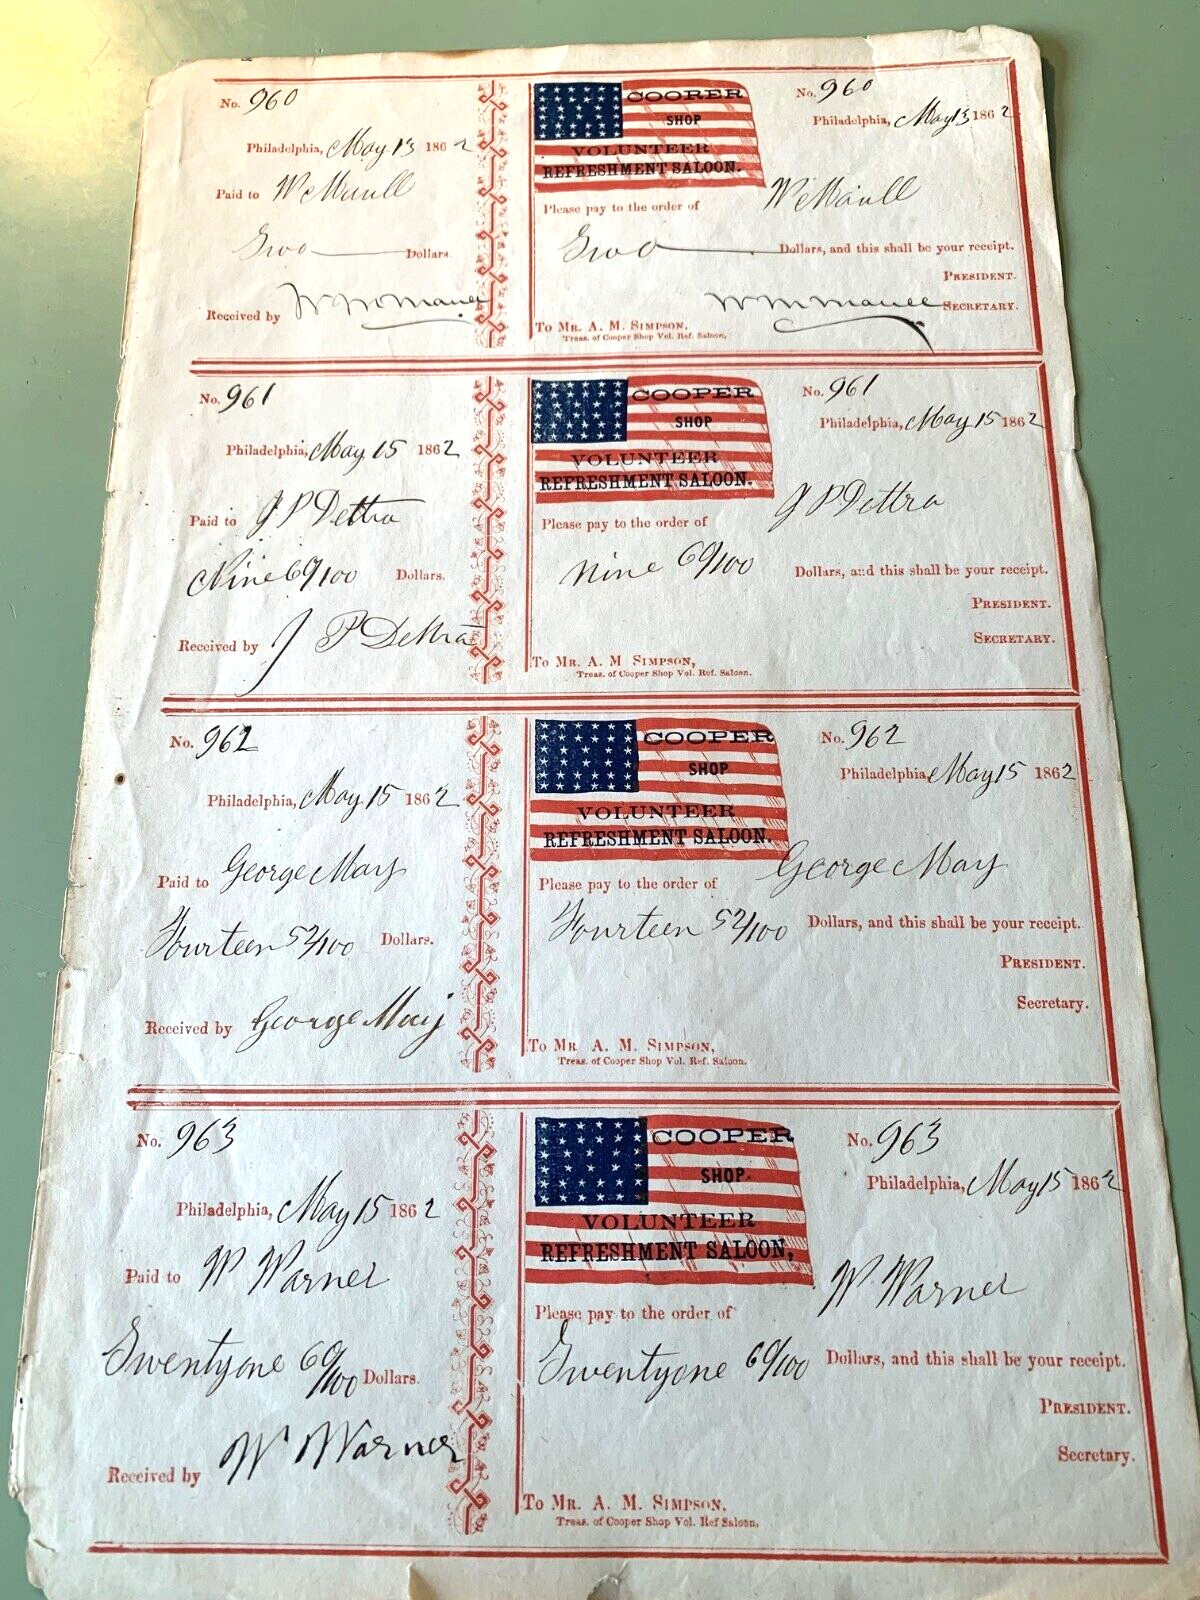 No. 960
Philadelphia, May 13 1862
Paid to Wm Maull
Two Dollars
Received by Wm M Maull
COOPER
SHOP
VOLUNTEER
REFRESHMENT SALOON.
No. 960
Philadelphia, May 13 1862
Please pay to the order of Wm Maull
Two Dollars, and this shall be your receipt.
PRESIDENT.
Wm M Maull SECRETARY.
To Mr. A. M. SIMPSON,
Treas. of Cooper Shop Vol. Ref. Saloon,
No. 961
Philadelphia, May 15 1862
Paid to J P Dettra
Nine 69/100 Dollars.
Received by J P Dettra
COOPER
SHOP
VOLUNTEER
REFRESHMENT SALOON.
No. 961
Philadelphia, May 15 1862
Please pay to the order of J P Dettra
nine 69/100 Dollars, and this shall be your receipt.
PRESIDENT.
SECRETARY.
To Mr. A. M SIMPSON,
Treas. of Cooper Shop Vol. Ref. Saloon.
No. 962
Philadelphia, May 15 1862
Paid to George May
Fourteen 52/100 Dollars.
Received by George May
COOPER
SHOP
VOLUNTEER
REFRESHMENT SALOON.
No. 962
Philadelphia, May 15 1862
Please pay to the order of George May
Fourteen 52/100 Dollars, and this shall be your receipt.
PRESIDENT.
Secretary.
To Mr A. M. SIMPSON,
Treas. of Cooper Shop Vol. Ref. Saloon.
No. 963
Philadelphia, May 15 1862
Paid to W Warner
Twentyone 60/100 Dollars.
Received by W Warner
COOPER
SHOP.
VOLUNTEER
REFRESHMENT SALOON,
No. 963
Philadelphia, May 15 1862
Please pay to the order of W. Warner
Twentyone 60/100 Dollars, and this shall be your receipt.
PRESIDENT.
Secretary.
To Mr. A. M. SIMPSON,
Treas. of Cooper Shop Vol. Ref Saloon,